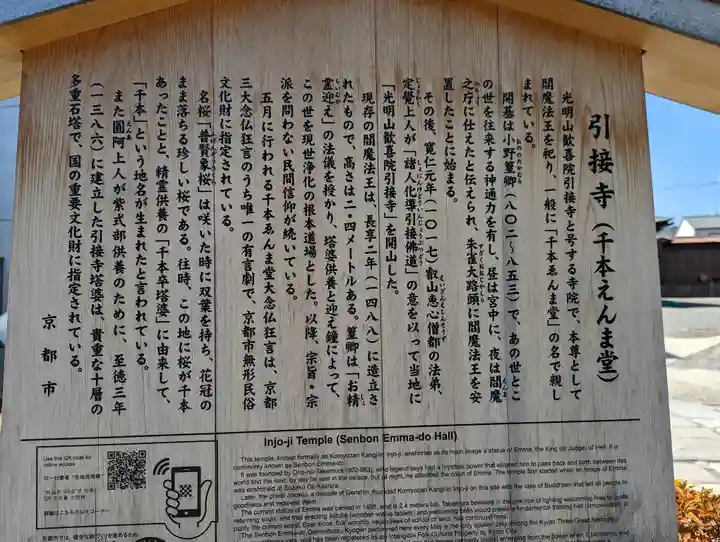 引接寺（千本えんま堂）
光明山歓喜院引接寺と号する寺院で、本尊として
閻魔法王を祀り、一般に「千本ゑんま堂」の名で親し
まれている。
開基は小野篁卿（八〇二〜八五三）で、あの世とこ
の世を往来する神通力を有し、昼は宮中に、夜は閻魔
之庁に仕えたと伝えられ、朱雀大路頭に閻魔法王を安
置したことに始まる。
その後、寛仁元年（一〇一七）叡山恵心僧都の法弟、
定覺上人が「諸人化導引接佛道」の意を以って当地に
「光明山歓喜院引接寺」を開山した。
現存の閻魔法王は、長享二年（一四八八）に造立さ
れたもので、高さは二・四メートルある。篁卿は「お精
霊迎え」の法儀を授かり、塔婆供養と迎え鐘によって、
この世を現世浄化の根本道場とした。以降、宗旨・宗
派を問わない民間信仰が続いている。
五月に行われる千本ゑんま堂大念仏狂言は、京都
三大念仏狂言のうち唯一の有言劇で、京都市無形民俗
文化財に指定されている。
名桜「普賢象桜」は咲いた時に双葉を持ち、花冠の
まま落ちる珍しい桜である。往時、この地に桜が千本
あったことと、精霊供養の「千本卒塔婆」に由来して、
「千本」という地名が生まれたと言われている。
また圓阿上人が紫式部供養のために、至徳三年
（一三八六）に建立した引接寺塔婆は、貴重な十層の
多重石塔で、国の重要文化財に指定されている。
京都市
Injo-ji Temple (Senbon Emma-do Hall)
This temple, known formally as Komyozan Kangi-in Injo-ji, enshrines as its main image a statue of Emma, the King (or Judge) of Hell. It is
commonly known as Senbon Emma-do.
It was founded by Ono-no-Takamura (802-853), who legend says had a mystical power that allowed him to pass back and forth between this
world and the next; by day he was in the palace, but at night, he attended the court of Emma. The temple first started when an image of Emma
was enshrined at Suzaku Oji-Kashira.
Use this QR code for
online access